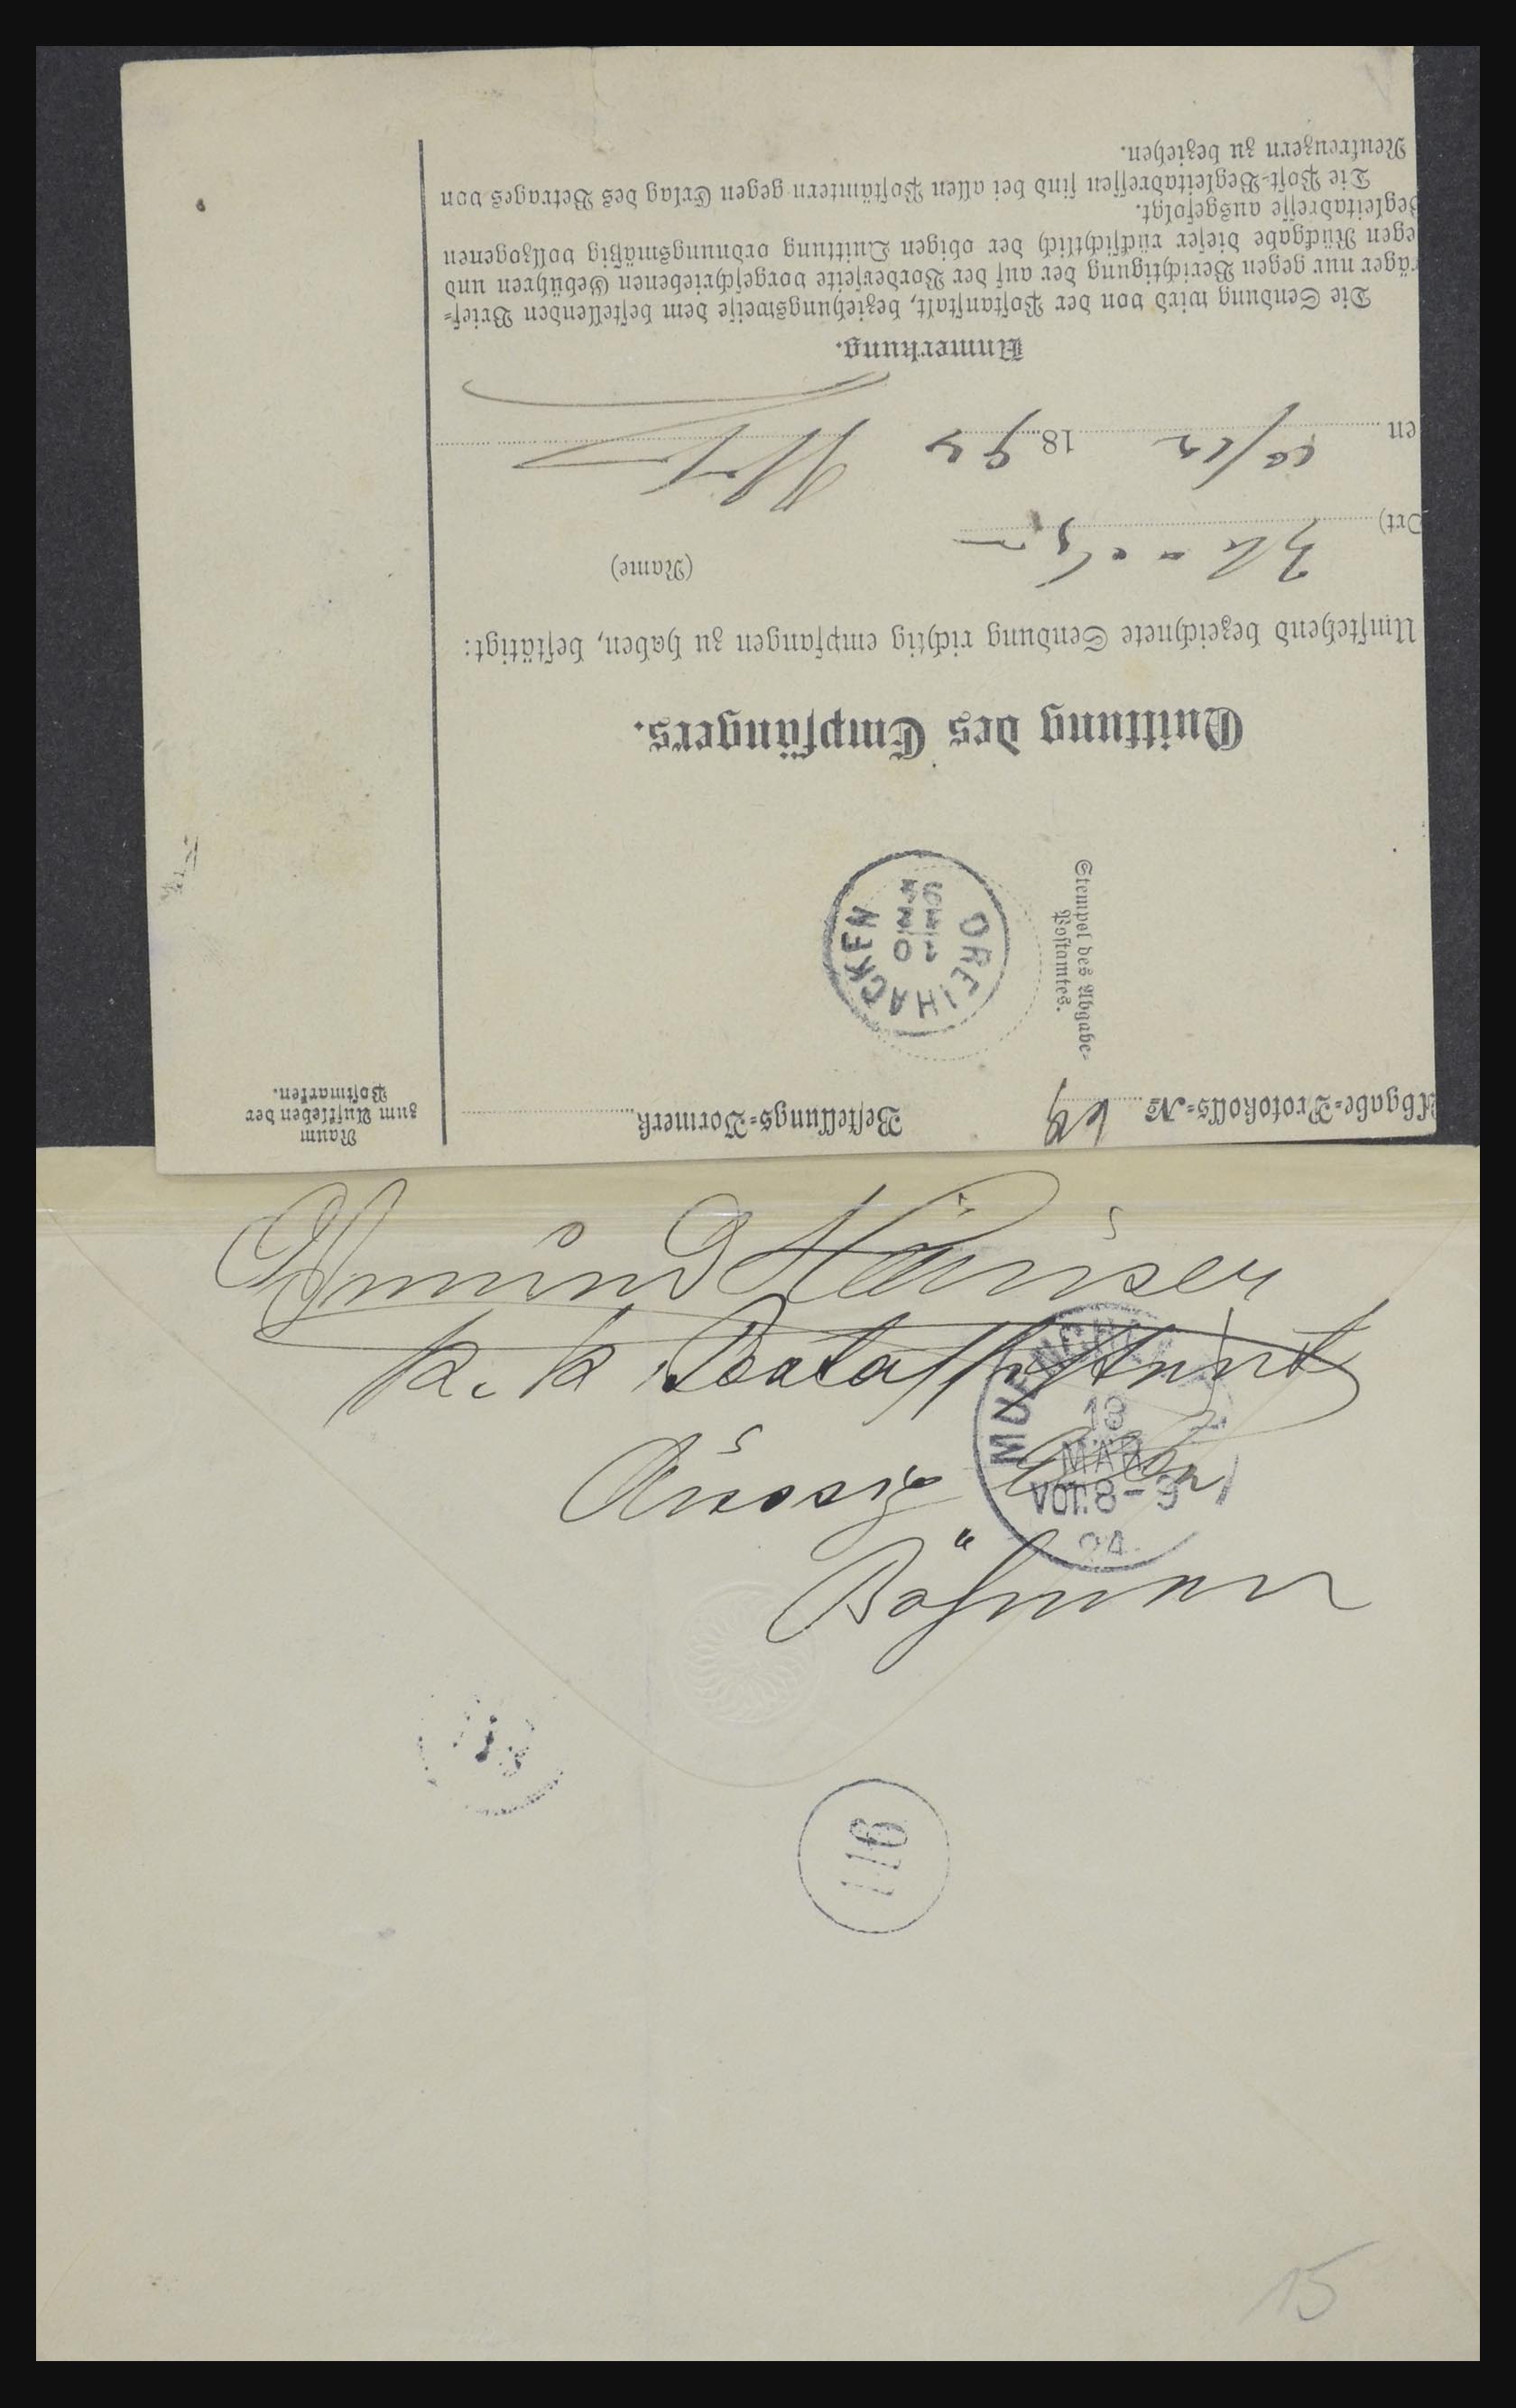 Abgabe-Protokolls-№ 64
Bestellungs-Vormerk
Raum
zum Aufkleben der
Postmarken.
Stempel des Abgabe-
Postamtes.
DREIHACKEN
10
12
94
Quittung des Empfängers.
Umstehend bezeichnete Sendung richtig empfangen zu haben, bestätigt:
(Name)
Ort)
en 10/12 1894
Anmerkung.
Die Sendung wird von der Postanstalt, beziehungsweise dem bestellenden Brief-
räger nur gegen Berichtigung der auf der Vorderseite vorgeschriebenen Gebühren und
egen Rückgabe dieser rücksichtlich der obigen Quittung ordnungsmäßig vollzogenen
Begleitadresse ausgefolgt.
Die Post-Begleitadressen sind bei allen Postämtern gegen Erlag des Betrages von
Neukreuzern zu beziehen.
k. k.
Aussig
Böhmen
MUENCHEN
13
MÄR
Vor. 8-9
94
116
15